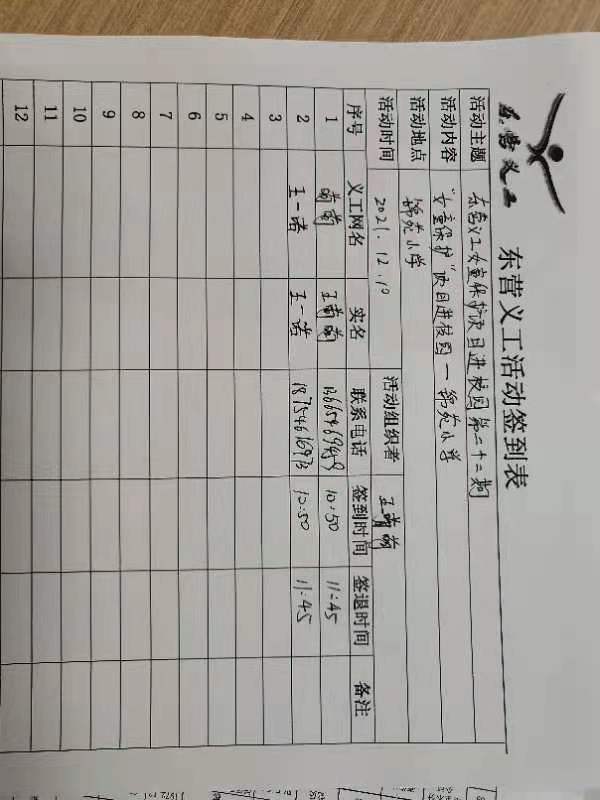 东营义工
东营义工活动签到表
活动主题 东营义工女童保护项目进校园第二十二期
活动内容 "女童保护"项目进校园—锦苑小学
活动地点 锦苑小学
活动时间 2021.12.10 活动组织者 王萌萌
序号 义工网名 实名 联系电话 签到时间 签退时间 备注
1 萌萌 王萌萌 10:50 11:45
2 王一诺 王一诺 18754616973 10:50 11:45
3
4
5
6
7
8
9
10
11
12